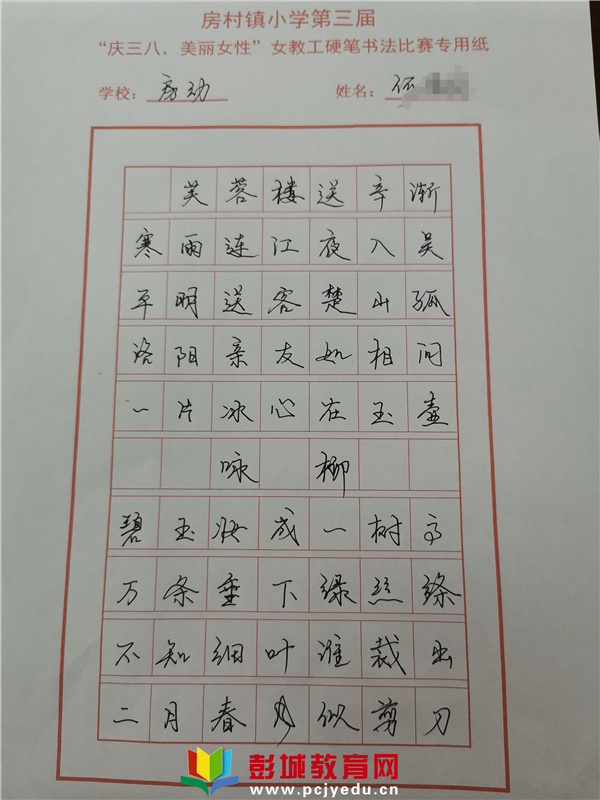 房村镇小学第三届
“庆三八．美丽女性”女教工硬笔书法比赛专用纸
学校：房动 姓名：任
芙蓉楼送辛渐
寒雨连江夜入吴
平明送客楚山孤
洛阳亲友如相问
一片冰心在玉壶
咏 柳
碧玉妆成一树高
万条垂下绿丝绦
不知细叶谁裁出
二月春风似剪刀
彭城教育网
www.pcjyedu.cn